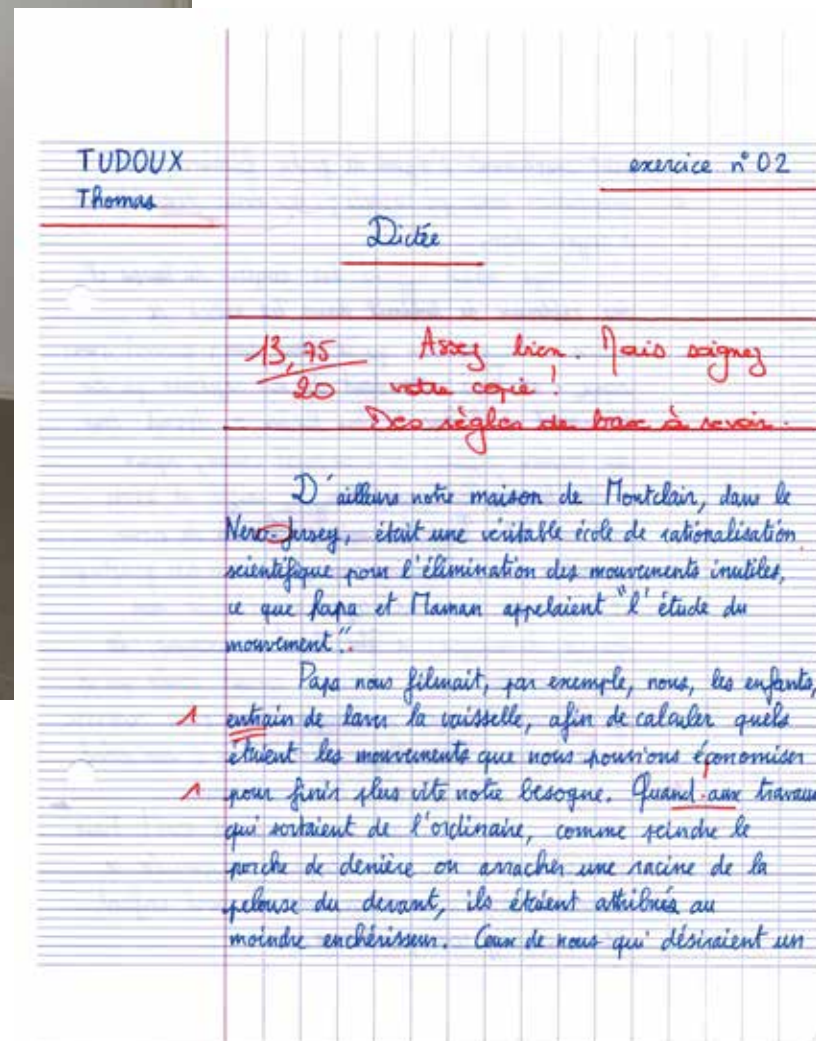 TUDOUX
exercice n° 02
Thomas
Dictée
13,75 Assez bien. Mais soignez
20 votre copie !
Des règles de base à savoir.
D'ailleurs notre maison de Montclair, dans le
New-Jersey, était une véritable école de rationalisation
scientifique pour l'élimination des mouvements inutiles,
ce que Papa et Maman appelaient "l'étude du
mouvement".
Papa nous filmait, par exemple, nous, les enfants,
1 entrain de laver la vaisselle, afin de calculer quels
étaient les mouvements que nous pouvions économiser
1 pour finir plus vite notre besogne. Quand aux travaux
qui sortaient de l'ordinaire, comme peindre le
porche de derrière ou arracher une racine de la
pelouse du devant, ils étaient attribués au
moindre enchérisseur. Ceux de nous qui désiraient un